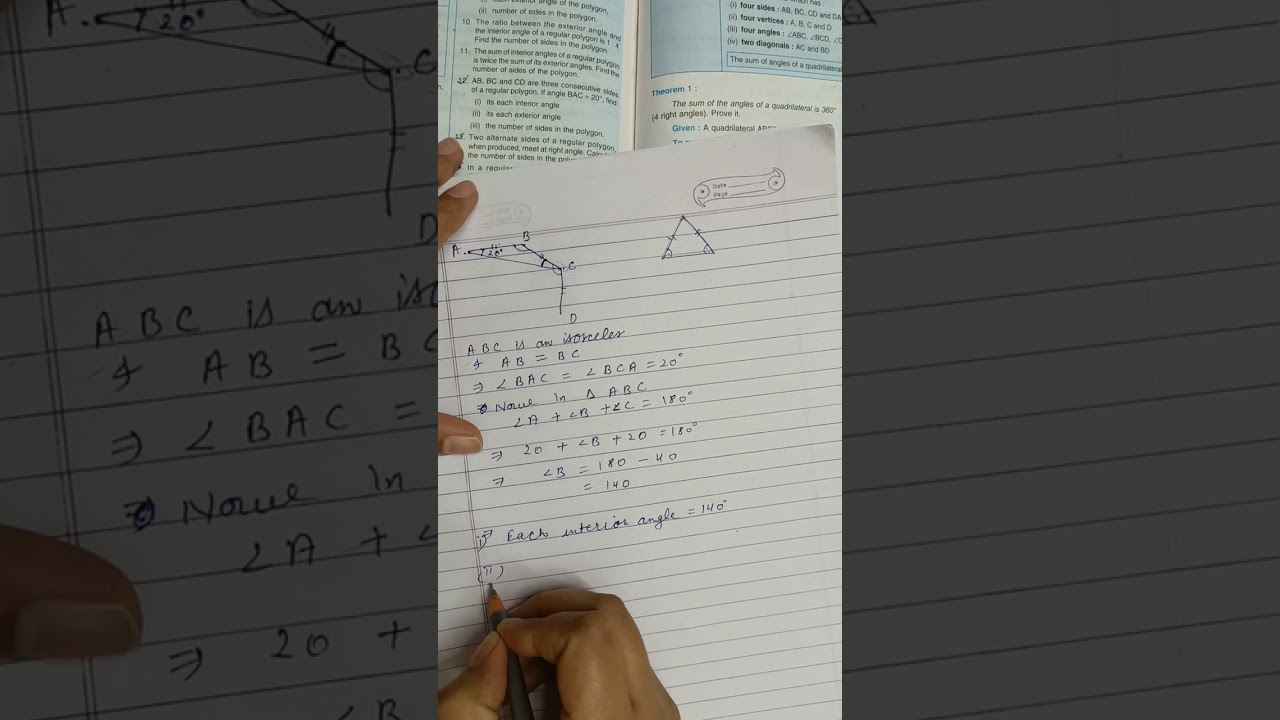 (i) each exterior angle of the polygon,
(ii) number of sides in the polygon.
10. The ratio between the exterior angle and
the interior angle of a regular polygon is 1 : 4.
Find the number of sides in the polygon.
11. The sum of interior angles of a regular polygon
is twice the sum of its exterior angles. Find the
number of sides of the polygon.
12. AB, BC and CD are three consecutive sides
of a regular polygon. If angle BAC = 20°, find:
(i) its each interior angle
(ii) its each exterior angle
(iii) the number of sides in the polygon.
13. Two alternate sides of a regular polygon,
when produced, meet at right angle.
the number of sides in the
In a
(i) four sides : AB, BC, CD and DA
(ii) four vertices : A, B, C and D
(iii) four angles : ∠ABC, ∠BCD,
(iv) two diagonals : AC and BD
The sum of angles of a quadrilateral
Theorem 1 :
The sum of the angles of a quadrilateral is 360°
(4 right angles). Prove it.
Given : A quadrilateral
Date
Page
A
B
20°
C
D
ABC is an isosceles
& AB = BC
⇒ ∠BAC = ∠BCA = 20°
Nowe In △ ABC
∠A + ∠B + ∠C = 180°
⇒ 20 + ∠B + 20 = 180°
⇒ ∠B = 180 - 40
= 140
i) Each interior angle = 140°
(ii)
A
20°
C
D
ABC is an iso
& AB = BC
⇒ ∠BAC =
Nowe In
∠A +
⇒ 20 +
∠B